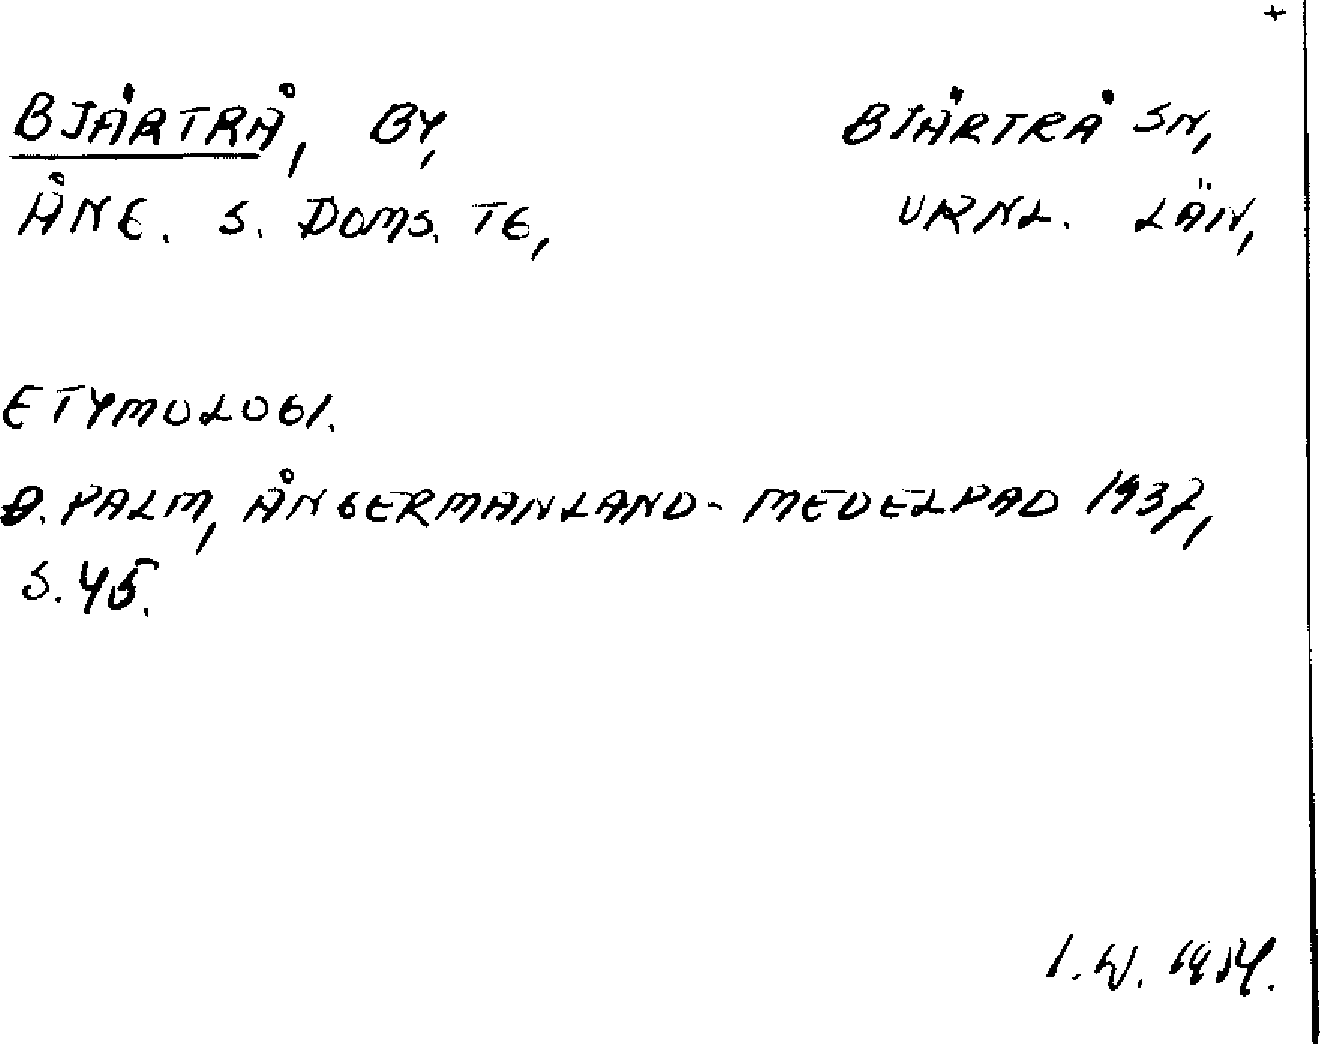 +
BJÄRTRÅ, BY, BJÄRTRÅ SN,
ÅNE. S. DOMS. TG, VRNL. LÄN,
ETYMOLOGI.
D. PALM, ÅNGERMANLAND - MEDELPAD 1937,
S. 45.
I. W. 1954.